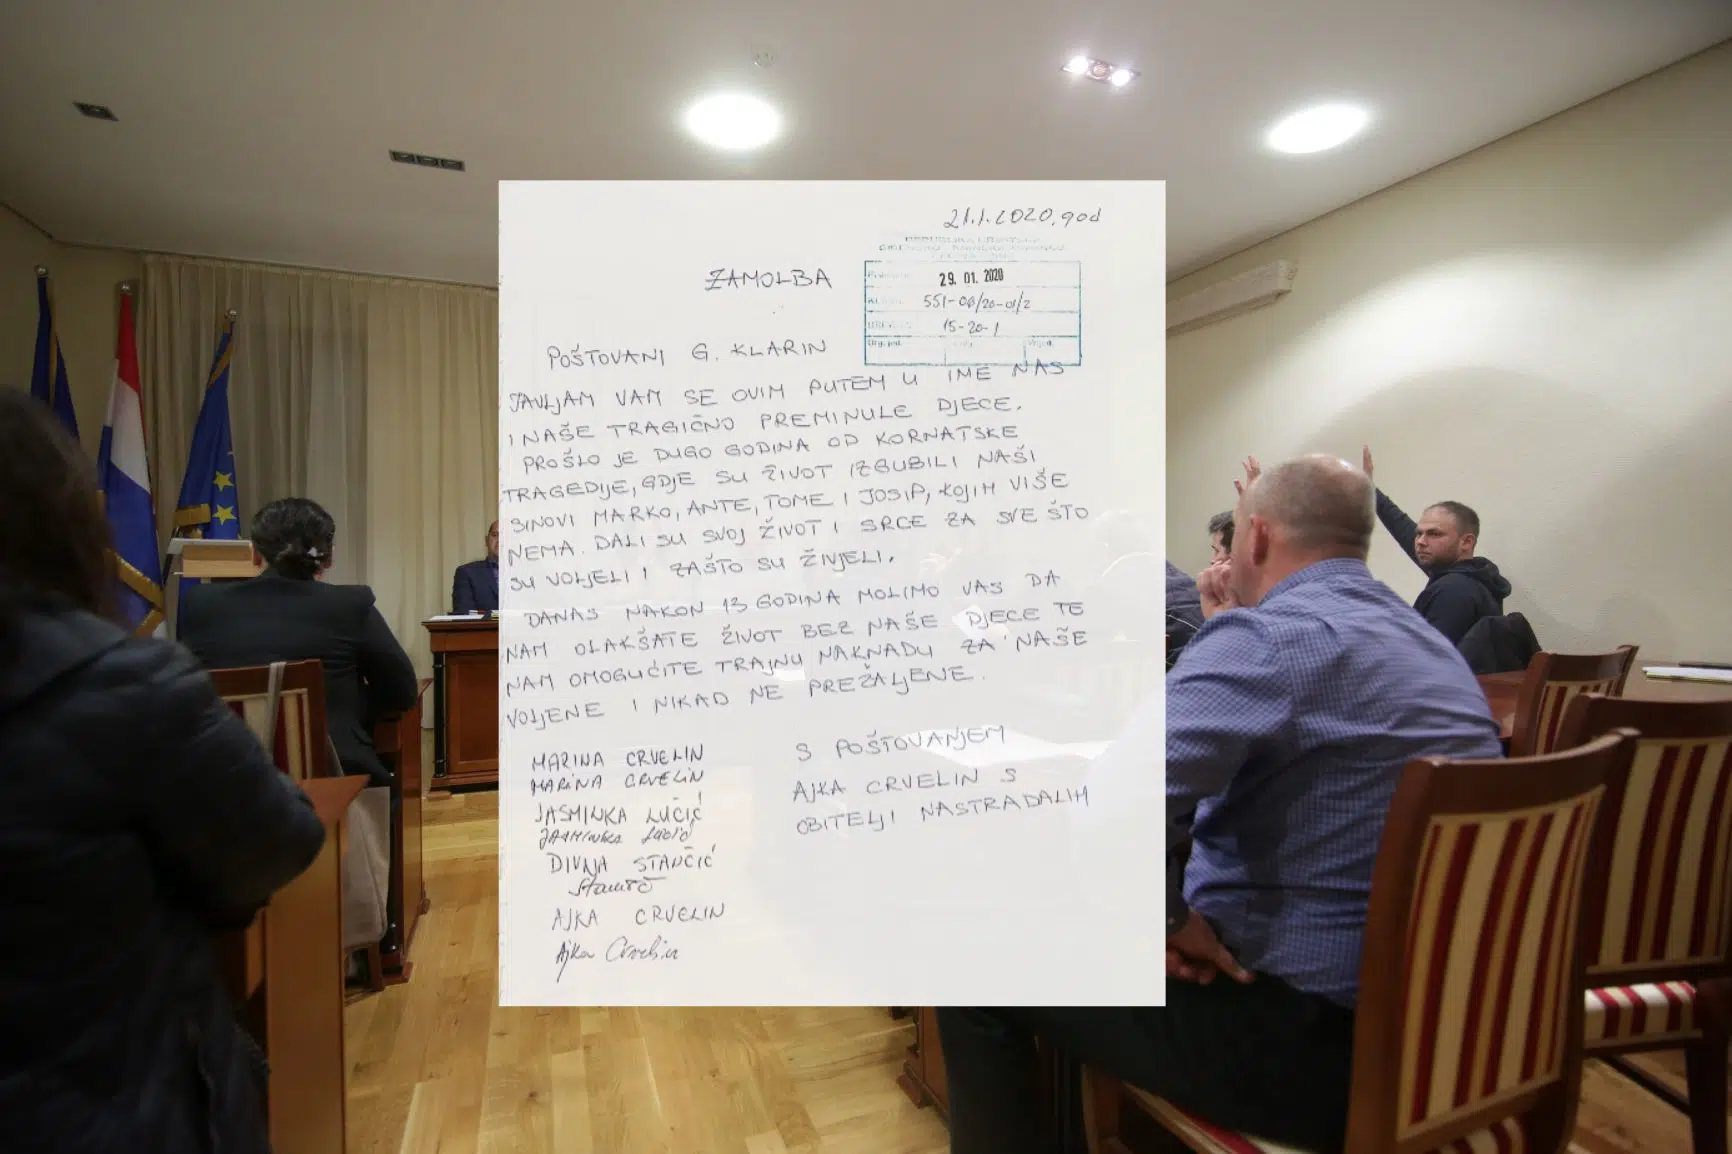 21.1.2020. god
ZAMOLBA
29. 01. 2020
551-06/20-01/2
15-20-1
POŠTOVANI G. KLARIN
JAVLJAM VAM SE OVIM PUTEM U IME NAS
I NAŠE TRAGIČNO PREMINULE DJECE.
PROŠLO JE DUGO GODINA OD KORNATSKE
TRAGEDIJE, GDJE SU ŽIVOT IZGUBILI NAŠI
SINOVI MARKO, ANTE, TOME I JOSIP, KOJIH VIŠE
NEMA. DALI SU SVOJ ŽIVOT I SRCE ZA SVE ŠTO
SU VOLJELI I ZAŠTO SU ŽIVJELI.
DANAS NAKON 13 GODINA MOLIMO VAS DA
NAM OLAKŠATE ŽIVOT BEZ NAŠE DJECE TE
NAM OMOGUĆITE TRAJNU NAKNADU ZA NAŠE
VOLJENE I NIKAD NE PREŽALJENE.
S POŠTOVANJEM
AJKA CRVELIN S
OBITELJI NASTRADALIH
MARINA CRVELIN
MARINA CRVELIN
JASMINKA LUČIĆ
JASMINKA Lučić
DIVNA STANČIĆ
Stančić
AJKA CRVELIN
Ajka Crvelin